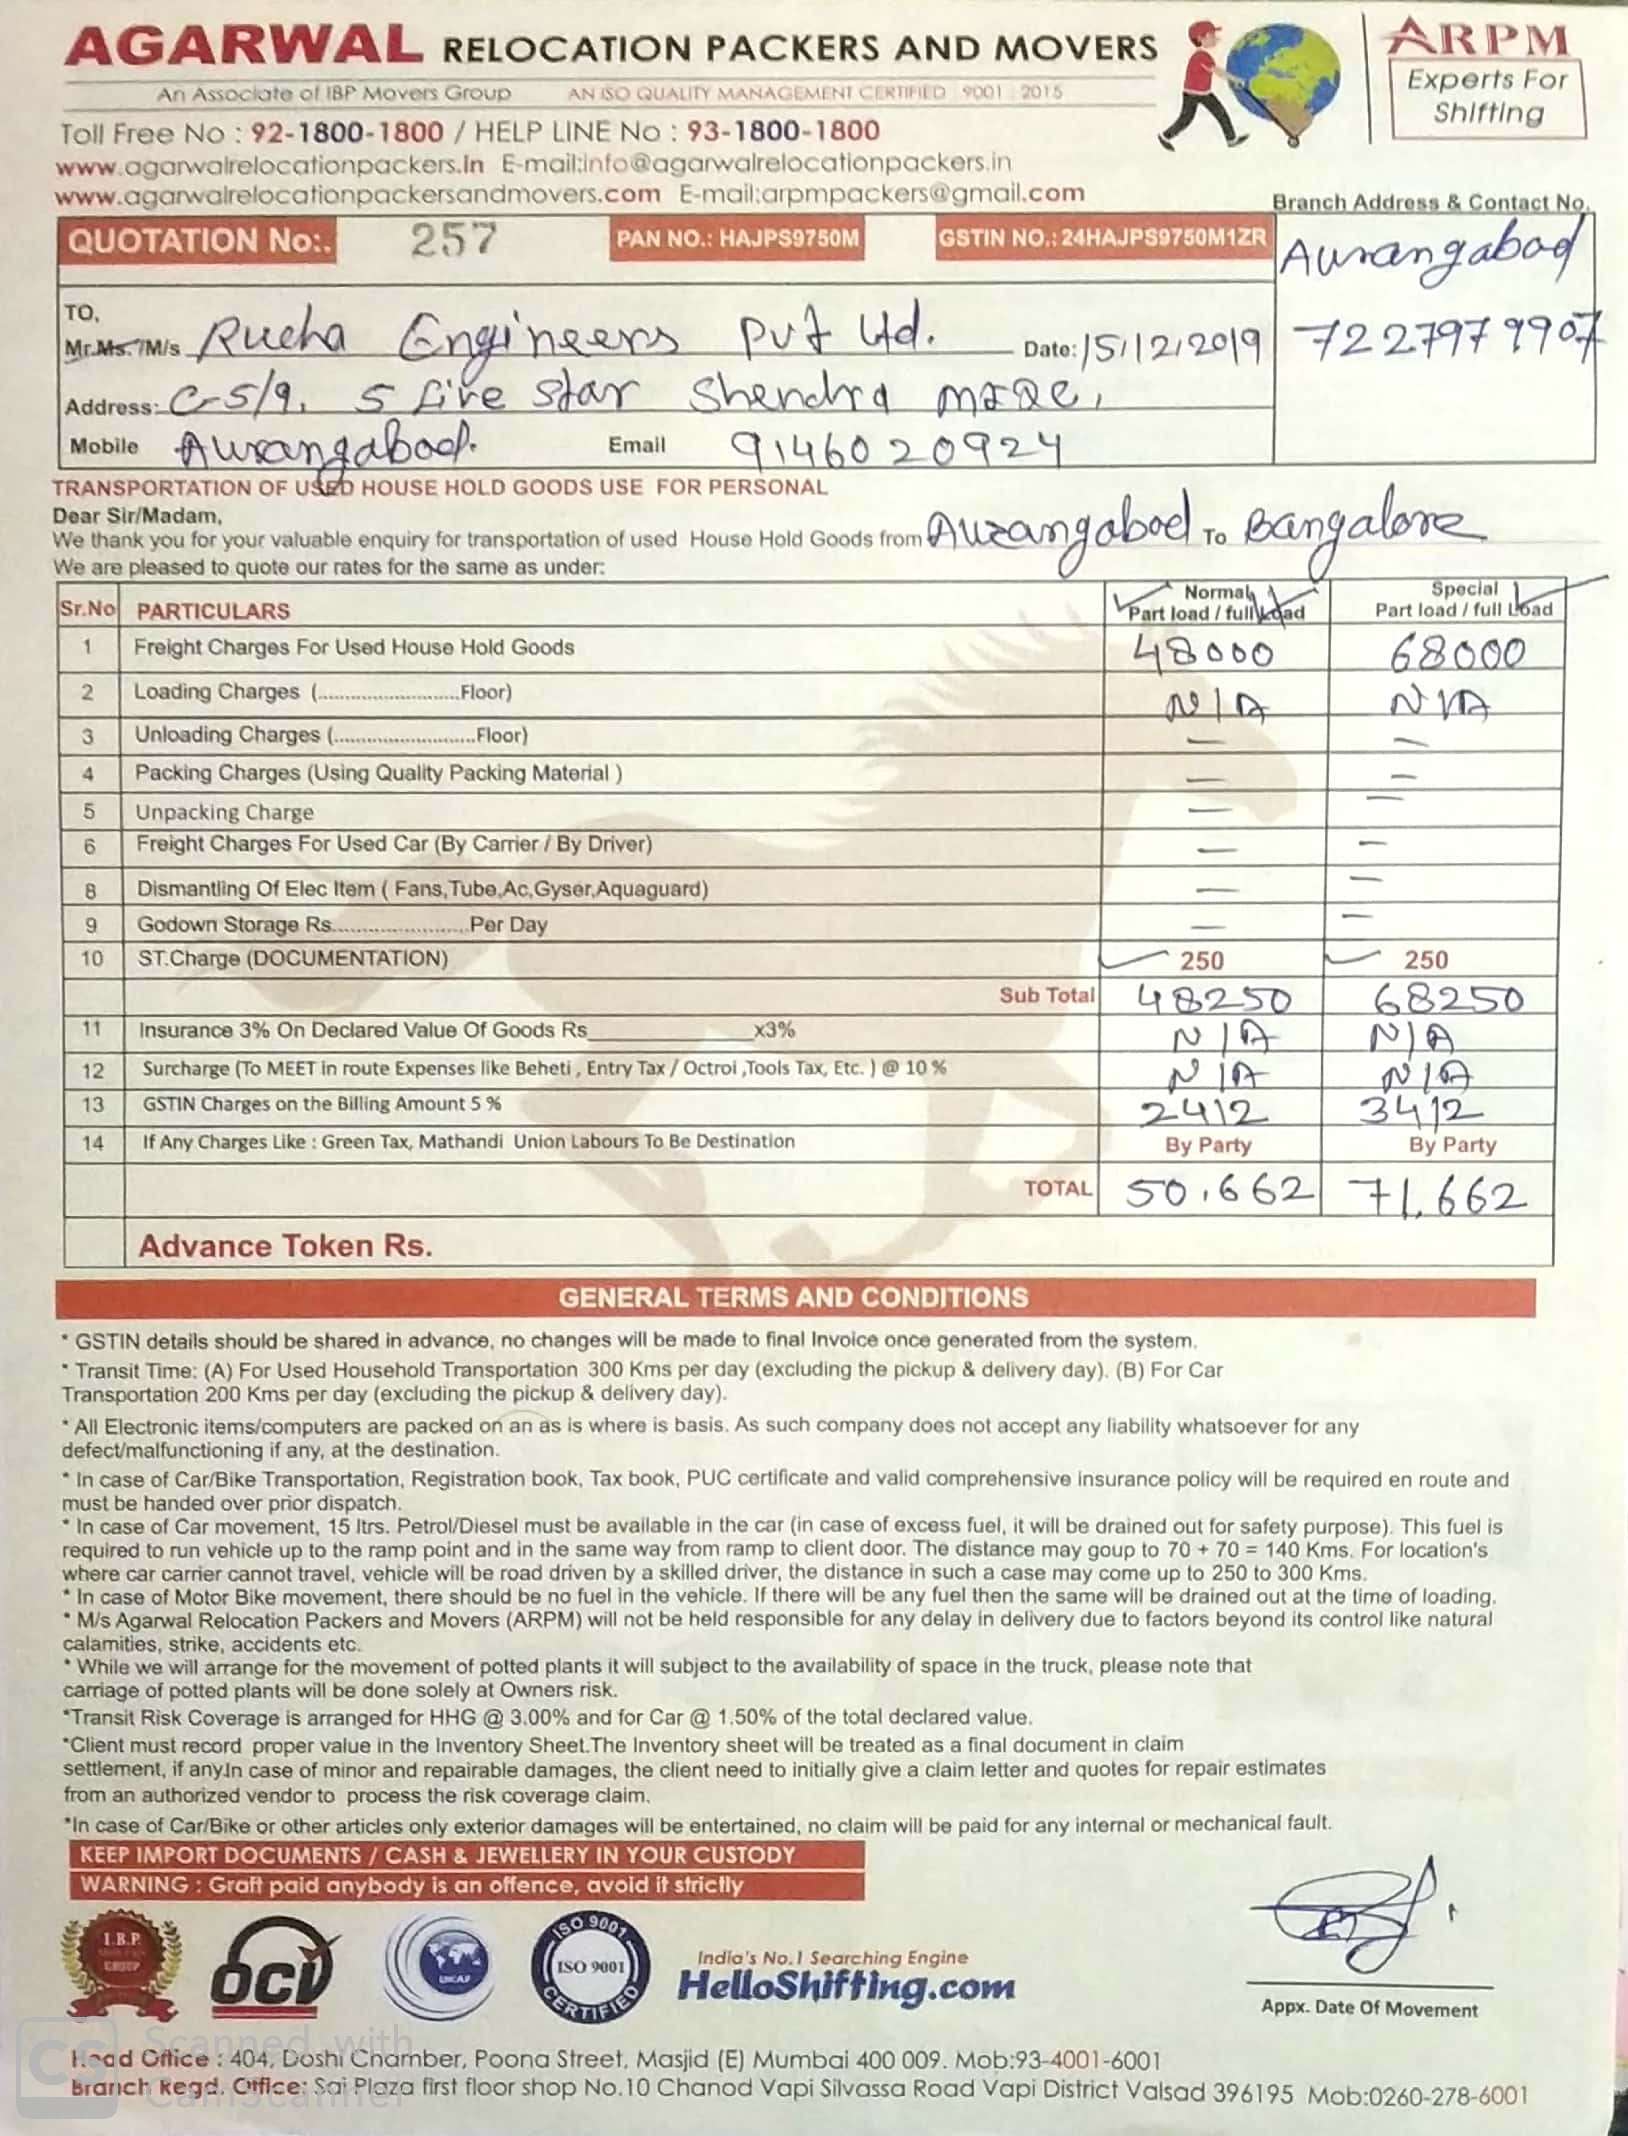 AGARWAL RELOCATION PACKERS AND MOVERS
An Associate of IBP Movers Group AN ISO QUALITY MANAGEMENT CERTIFIED 9001 : 2015
ARPM
Experts For
Shifting
Toll Free No : 92-1800-1800 / HELP LINE No : 93-1800-1800
www.agarwalrelocationpackers.in E-mail:info@agarwalrelocationpackers.in
www.agarwalrelocationpackersandmovers.com E-mail:arpmpackers@gmail.com
Branch Address & Contact No.
QUOTATION No:. 257 PAN NO.: HAJPS9750M GSTIN NO.: 24HAJPS9750M1ZR
Aurangabad
7227979907
TO,
Mr.Ms. /M/s Rucha Engineers Pvt Ltd. Date: 15/12/2019
Address: C-5/9, 5 five star Shendra MIDC,
Mobile Aurangabad. Email 9146020924
TRANSPORTATION OF USED HOUSE HOLD GOODS USE FOR PERSONAL
Dear Sir/Madam,
We thank you for your valuable enquiry for transportation of used House Hold Goods from Aurangabad To Bangalore
We are pleased to quote our rates for the same as under:
Sr.No PARTICULARS Normal Part load / full Load Special Part load / full Load
1 Freight Charges For Used House Hold Goods 48000 68000
2 Loading Charges (..........................Floor) N/A N/A
3 Unloading Charges (..........................Floor) — —
4 Packing Charges (Using Quality Packing Material ) — —
5 Unpacking Charge — —
6 Freight Charges For Used Car (By Carrier / By Driver) — —
8 Dismantling Of Elec Item ( Fans,Tube,Ac,Gyser,Aquaguard) — —
9 Godown Storage Rs.........................Per Day — —
10 ST.Charge (DOCUMENTATION) 250 250
Sub Total 48250 68250
11 Insurance 3% On Declared Value Of Goods Rs_______________x3% N/A N/A
12 Surcharge (To MEET in route Expenses like Beheti , Entry Tax / Octroi ,Tools Tax, Etc. ) @ 10 % N/A N/A
13 GSTIN Charges on the Billing Amount 5 % 2412 3412
14 If Any Charges Like : Green Tax, Mathandi Union Labours To Be Destination By Party By Party
TOTAL 50,662 71,662
Advance Token Rs.
GENERAL TERMS AND CONDITIONS
* GSTIN details should be shared in advance, no changes will be made to final Invoice once generated from the system.
* Transit Time: (A) For Used Household Transportation 300 Kms per day (excluding the pickup & delivery day). (B) For Car
Transportation 200 Kms per day (excluding the pickup & delivery day).
* All Electronic items/computers are packed on an as is where is basis. As such company does not accept any liability whatsoever for any
defect/malfunctioning if any, at the destination.
* In case of Car/Bike Transportation, Registration book, Tax book, PUC certificate and valid comprehensive insurance policy will be required en route and
must be handed over prior dispatch.
* In case of Car movement, 15 ltrs. Petrol/Diesel must be available in the car (in case of excess fuel, it will be drained out for safety purpose). This fuel is
required to run vehicle up to the ramp point and in the same way from ramp to client door. The distance may goup to 70 + 70 = 140 Kms. For location's
where car carrier cannot travel, vehicle will be road driven by a skilled driver, the distance in such a case may come up to 250 to 300 Kms.
* In case of Motor Bike movement, there should be no fuel in the vehicle. If there will be any fuel then the same will be drained out at the time of loading.
* M/s Agarwal Relocation Packers and Movers (ARPM) will not be held responsible for any delay in delivery due to factors beyond its control like natural
calamities, strike, accidents etc.
* While we will arrange for the movement of potted plants it will subject to the availability of space in the truck, please note that
carriage of potted plants will be done solely at Owners risk.
*Transit Risk Coverage is arranged for HHG @ 3.00% and for Car @ 1.50% of the total declared value.
*Client must record proper value in the Inventory Sheet.The Inventory sheet will be treated as a final document in claim
settlement, if any.In case of minor and repairable damages, the client need to initially give a claim letter and quotes for repair estimates
from an authorized vendor to process the risk coverage claim.
*In case of Car/Bike or other articles only exterior damages will be entertained, no claim will be paid for any internal or mechanical fault.
KEEP IMPORT DOCUMENTS / CASH & JEWELLERY IN YOUR CUSTODY
WARNING : Graft paid anybody is an offence, avoid it strictly
I.B.P.
GROUP
OCV
UKCAF
ISO 9001
ISO 9001
CERTIFIED
India's No.1 Searching Engine
HelloShifting.com
Appx. Date Of Movement
CS Scanned with
CamScanner
Head Office : 404, Doshi Chamber, Poona Street, Masjid (E) Mumbai 400 009. Mob:93-4001-6001
Branch Regd. Office: Sai Plaza first floor shop No.10 Chanod Vapi Silvassa Road Vapi District Valsad 396195 Mob:0260-278-6001